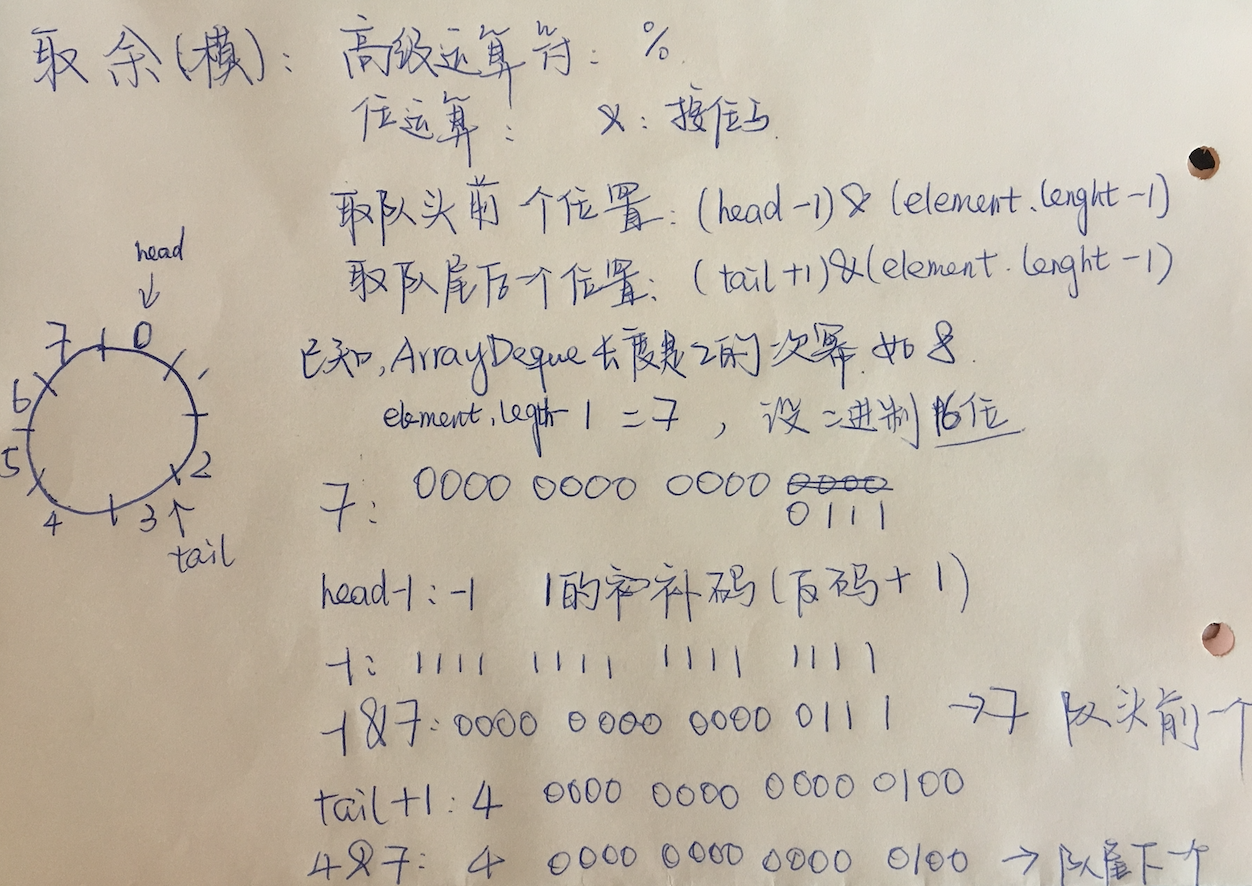 取余(模): 高级运算符: %
位运算: &: 按位与
取队头前一个位置: (head-1)&(element.lenght-1)
取队尾后一个位置: (tail+1)&(element.lenght-1)
已知,ArrayDeque长度是2的次幂.如8.
element.legth-1=7 , 设二进制16位
7: 0000 0000 0000 0000
0111
head-1:-1 1的补码(反码+1)
-1: 1111 1111 1111 1111
-1&7:0000 0000 0000 0111 →7 队头前一个
tail+1:4 0000 0000 0000 0100
4&7: 4 0000 0000 0000 0100 →队尾下一个
head
↓
7 0
6
5 2
4 3 ↑
tail